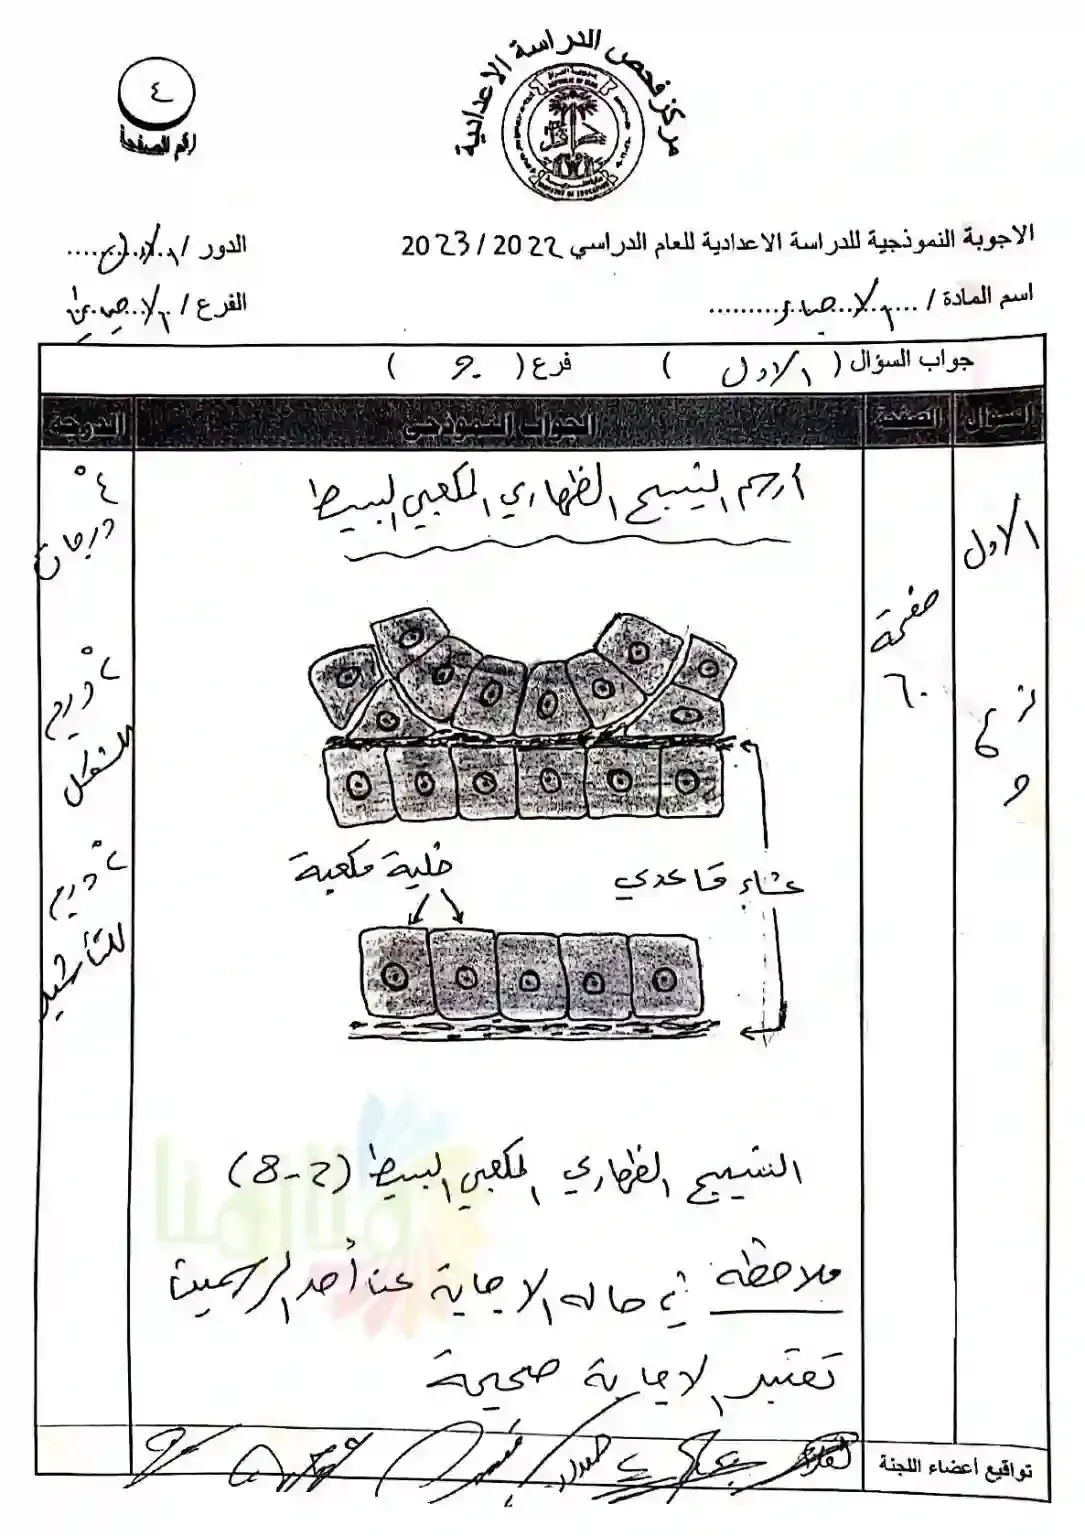 مركز فحص الدراسة الاعدادية
٤
رقم الصفحة
الاجوبة النموذجية للدراسة الاعدادية للعام الدراسي 2022 / 2023
الدور / الاول
اسم المادة / الاحياء
الفرع / الاحيائي
جواب السؤال ( الاول ) فرع ( و )
السؤال الصفحة الجواب النموذجي الدرجة
أرسم النسيج الظهاري المكعبي البسيط
٤ درجات
الاول
صفحة
٦٠
فرع
و
٢ درجة
للشكل
خلية مكعبة
غشاء قاعدي
٢ درجة
للتأشير
النسيج الظهاري المكعبي البسيط (2-8)
ملاحظة في حاله الاجابة عن أحد الرسمين
تعتبر الاجابة صحيحة
تواقيع أعضاء اللجنة